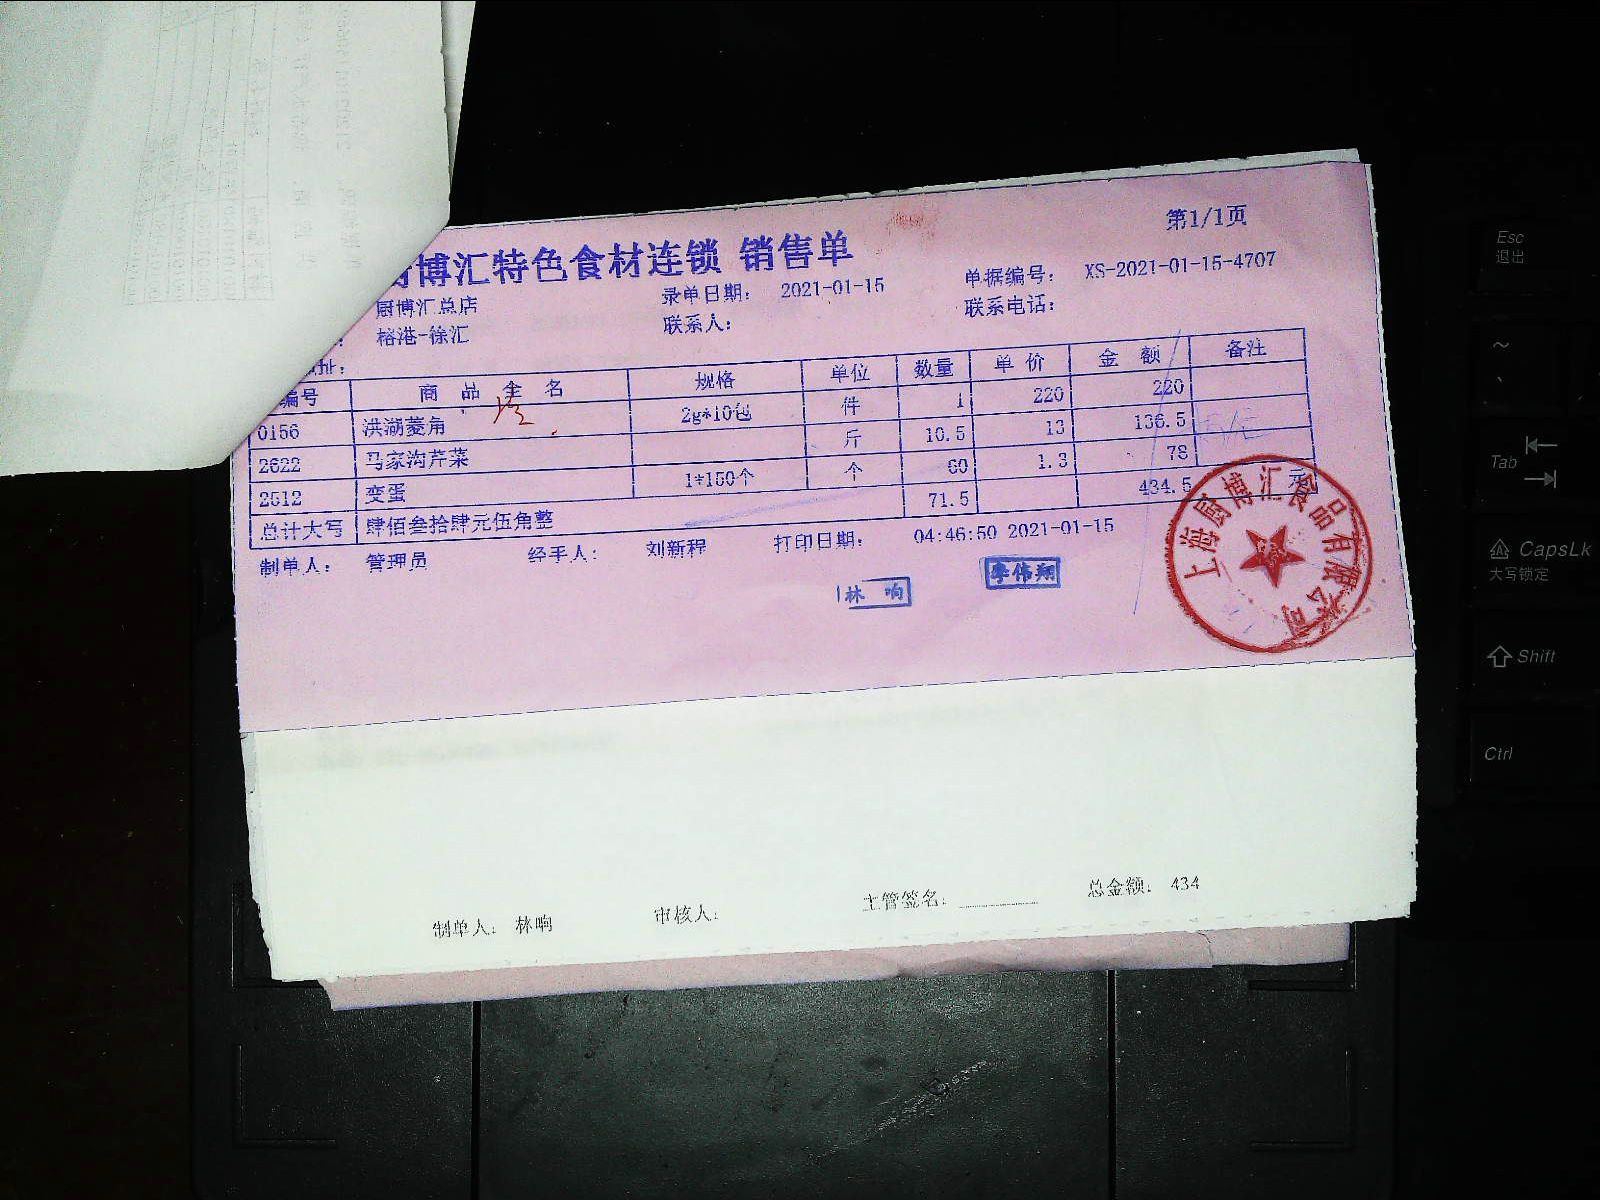 第1/1页
博汇特色食材连锁 销售单
厨博汇总店 录单日期: 2021-01-15 单据编号: XS-2021-01-15-4707
榕港-徐汇 联系人: 联系电话:
址:
编号 商品全名 规格 单位 数量 单价 金额 备注
0156 洪湖菱角 2g*10包 件 1 220 220
2622 马家沟芹菜 斤 10.5 13 136.5
2612 变蛋 1*150个 个 60 1.3 78
总计大写 肆佰叁拾肆元伍角整 71.5 434.5 元
制单人: 管理员 经手人: 刘新程 打印日期: 04:46:50 2021-01-15
林响 李伟翔
上海厨博汇食品有限公司
制单人: 林响 审核人: 主管签名: 总金额: 434
Esc
退出
~
Tab
CapsLk
大写锁定
Shift
Ctrl